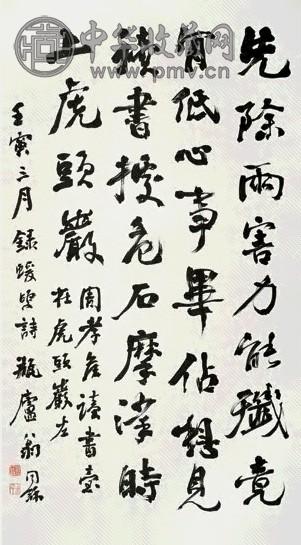 中华收藏网
www.pmv.cn
先除兩害力能殲竟
肯低心事畢佔想見
橫書據危石摩挲時
上虎頭巖
周孝矦讀書臺
在虎頭巖左
壬寅三月錄蝯叟詩瓶廬翁同龢